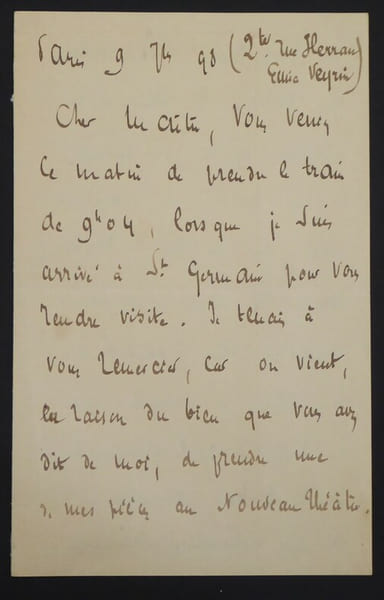 Paris 9 7bre 98 (2ter rue Herran
Emile Veyrin)
Cher Maître, Vous veniez
ce matin de prendre le train
de 9h04, lorsque je suis
arrivé à St Germain pour vous
rendre visite. Je tenais à
vous remercier, car on vient,
en raison du bien que vous avez
dit de moi, de prendre une
de mes pièces au Nouveau Théâtre.